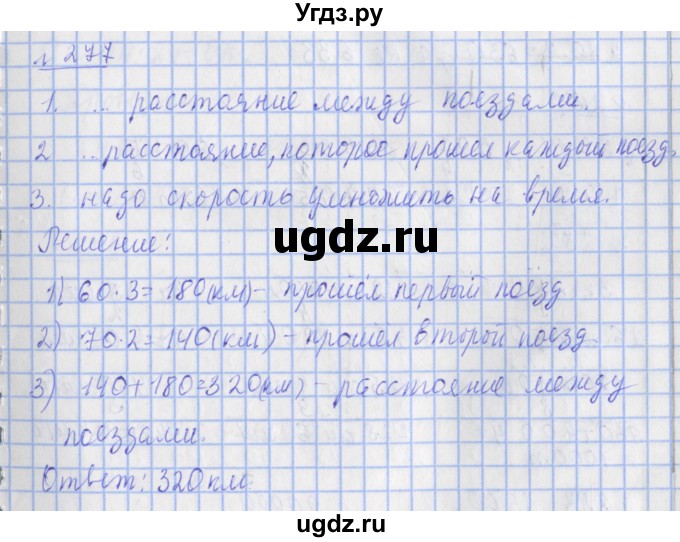 Угдз.ру
№ 277
1. .. расстояние между поездами.
2 .. расстояние, которое прошел каждый поезд.
3. надо скорость умножить на время.
ugdz.ru
Решение:
1) 60·3=180(км)- прошёл первый поезд
2) 70·2=140(км) - прошел второй поезд.
3) 140+180=320(км) - расстояние между
поездами.
Ответ: 320 км
ugdz.ru